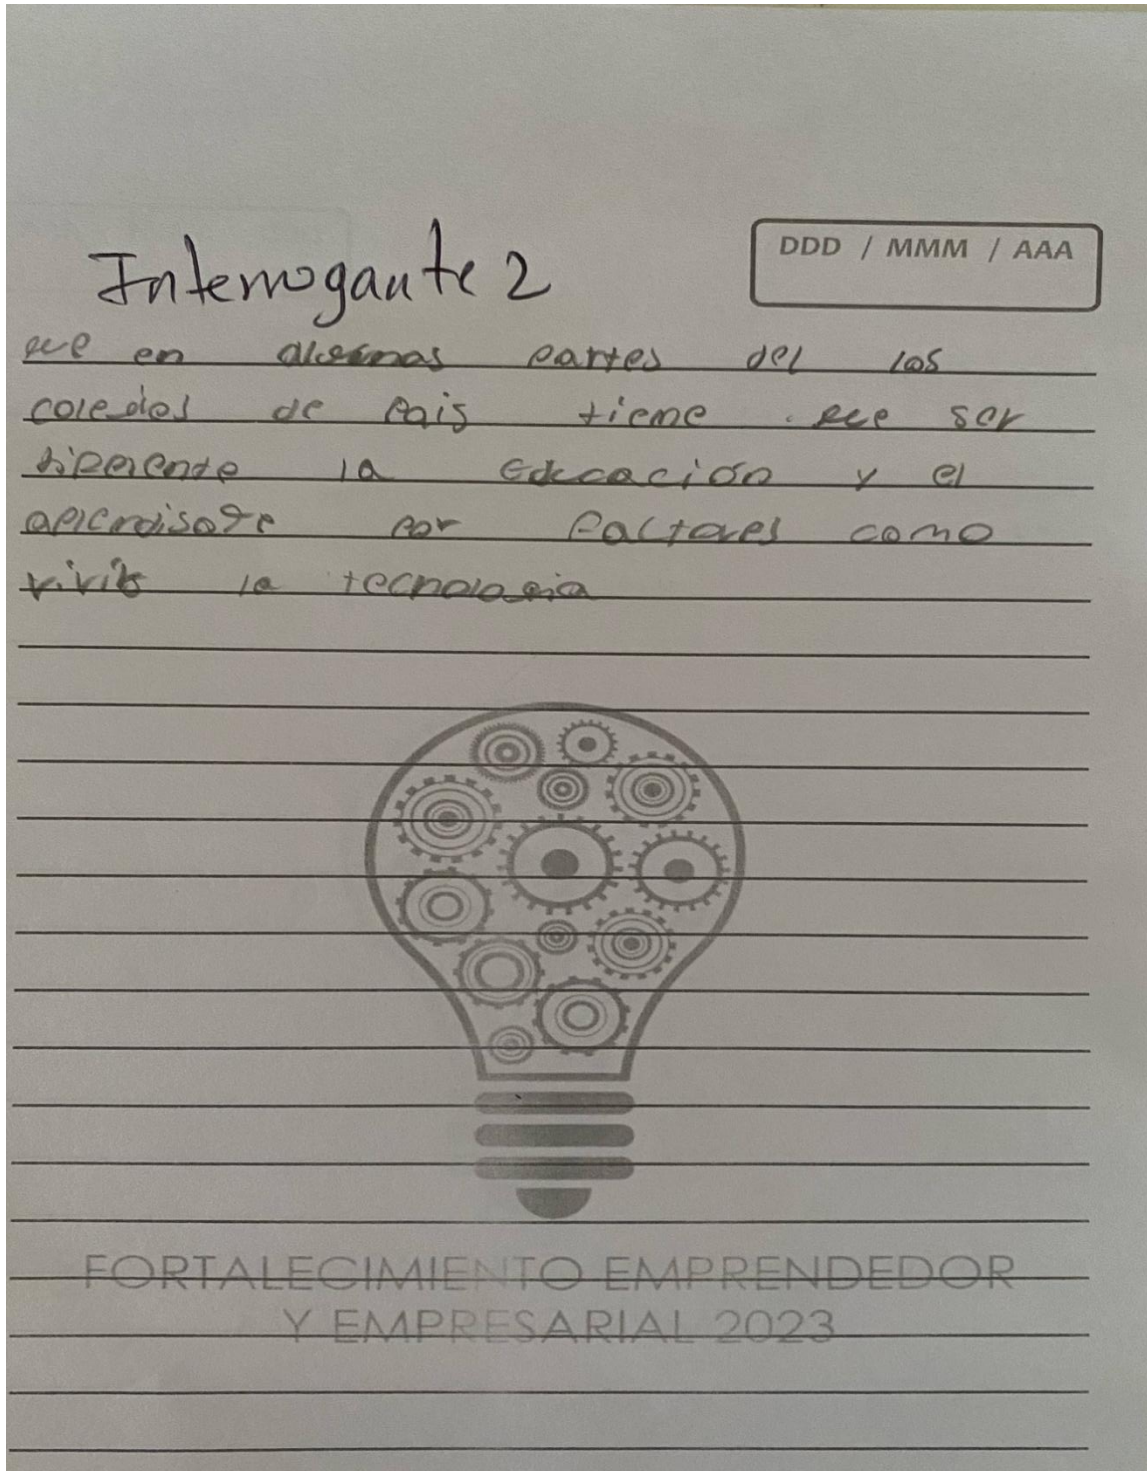 Interrogante 2
DDD / MMM / AAA
que en algunas partes del los
colegios de Pais tieme que ser
diferente la Educación y el
por factores como
la tecnologia
FORTALECIMIENTO EMPRENDEDOR
Y EMPRESARIAL 2023